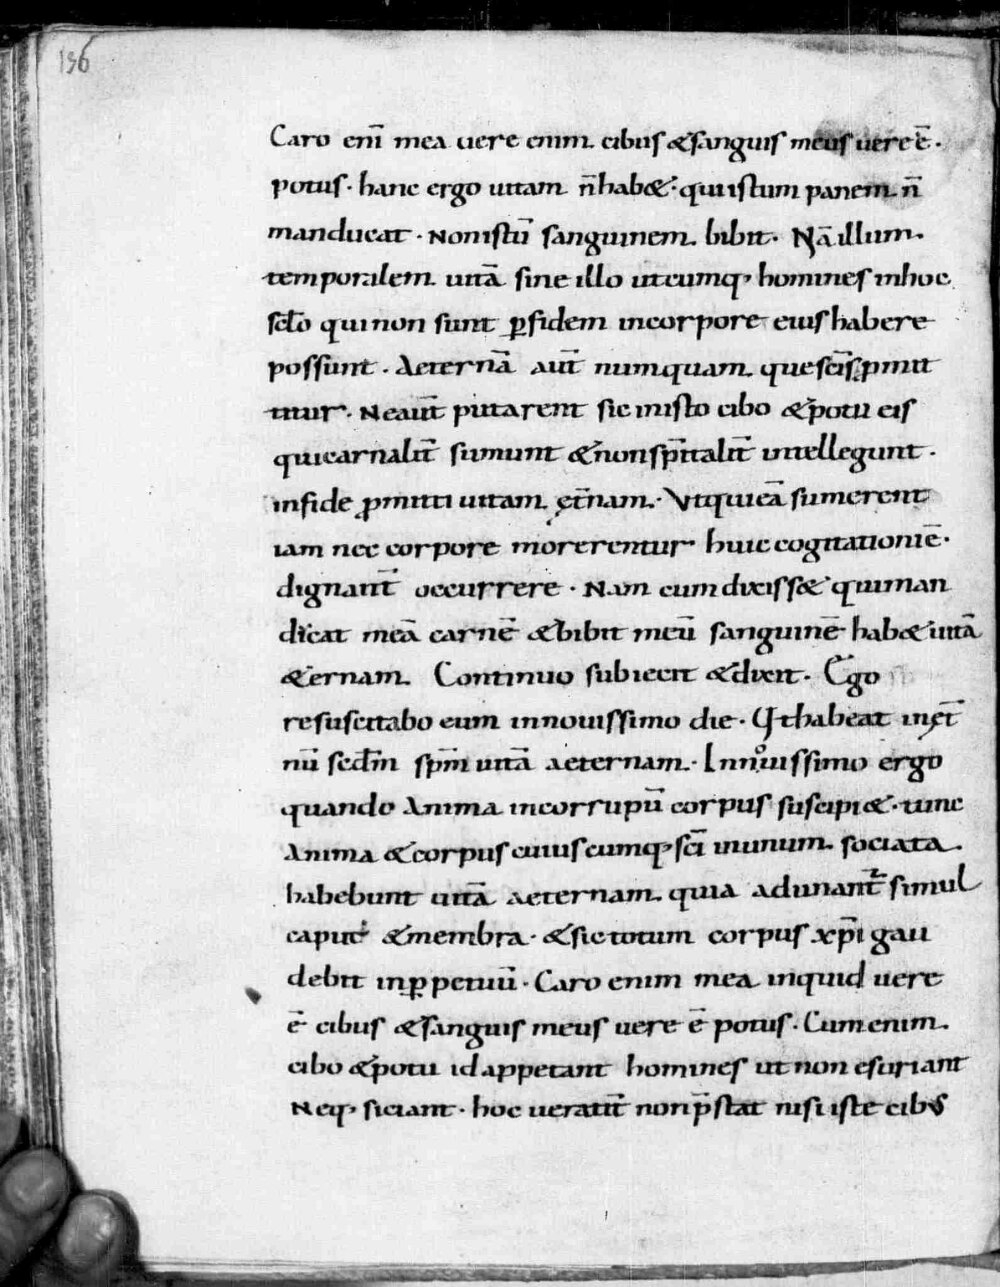 136
Caro enī mea uere enim cibus &sanguis meus uere ē·
potus· hanc ergo uitam n̄ hab&· qui istum panem n̄
manducat· Non istū sanguinem bibit· Nā illum
temporalem uitā sine illo utcumq; homines inhoc
sclo qui non sunt ꝑfidem incorpore eius habere
possunt· Aeternā aut̄ numquam que scīs ꝓmit
titur· Ne aut̄ putarent sic inisto cibo &potu eis
qui carnalit̄ sumunt &non sp̄italit̄ intellegunt·
infide ꝓmitti uitam et̄nam· Vt qui eā sumerent
iam nec corpore morerentur huic cogitationi ē·
dignant̄ occurrere· Nam cum dixiss& qui man
dicat meā carnē &bibit meū sanguinē hab& uitā
&ernam Continuo subiecit &dixit· Ego
resuscitabo eum innouissimo die· Vt habeat inęt̄
nū scdm sp̄m uitā aeternam· Innouissimo ergo
quando anima incorruptū corpus suscipi&· tunc
anima &corpus cuiuscumq; scī inunum sociata
habebunt uitā aeternam quia adunant̄ simul
caput &membra· &sic totum corpus xp̄i gau
debit inꝑpetuū· Caro enim mea inquid uere
ē cibus &sanguis meus uere ē potus· Cum enim
cibo &potu id appetant homines ut non esuriant
Neq; siciant· hoc ueracit̄ non p̄stat nisi iste cibus